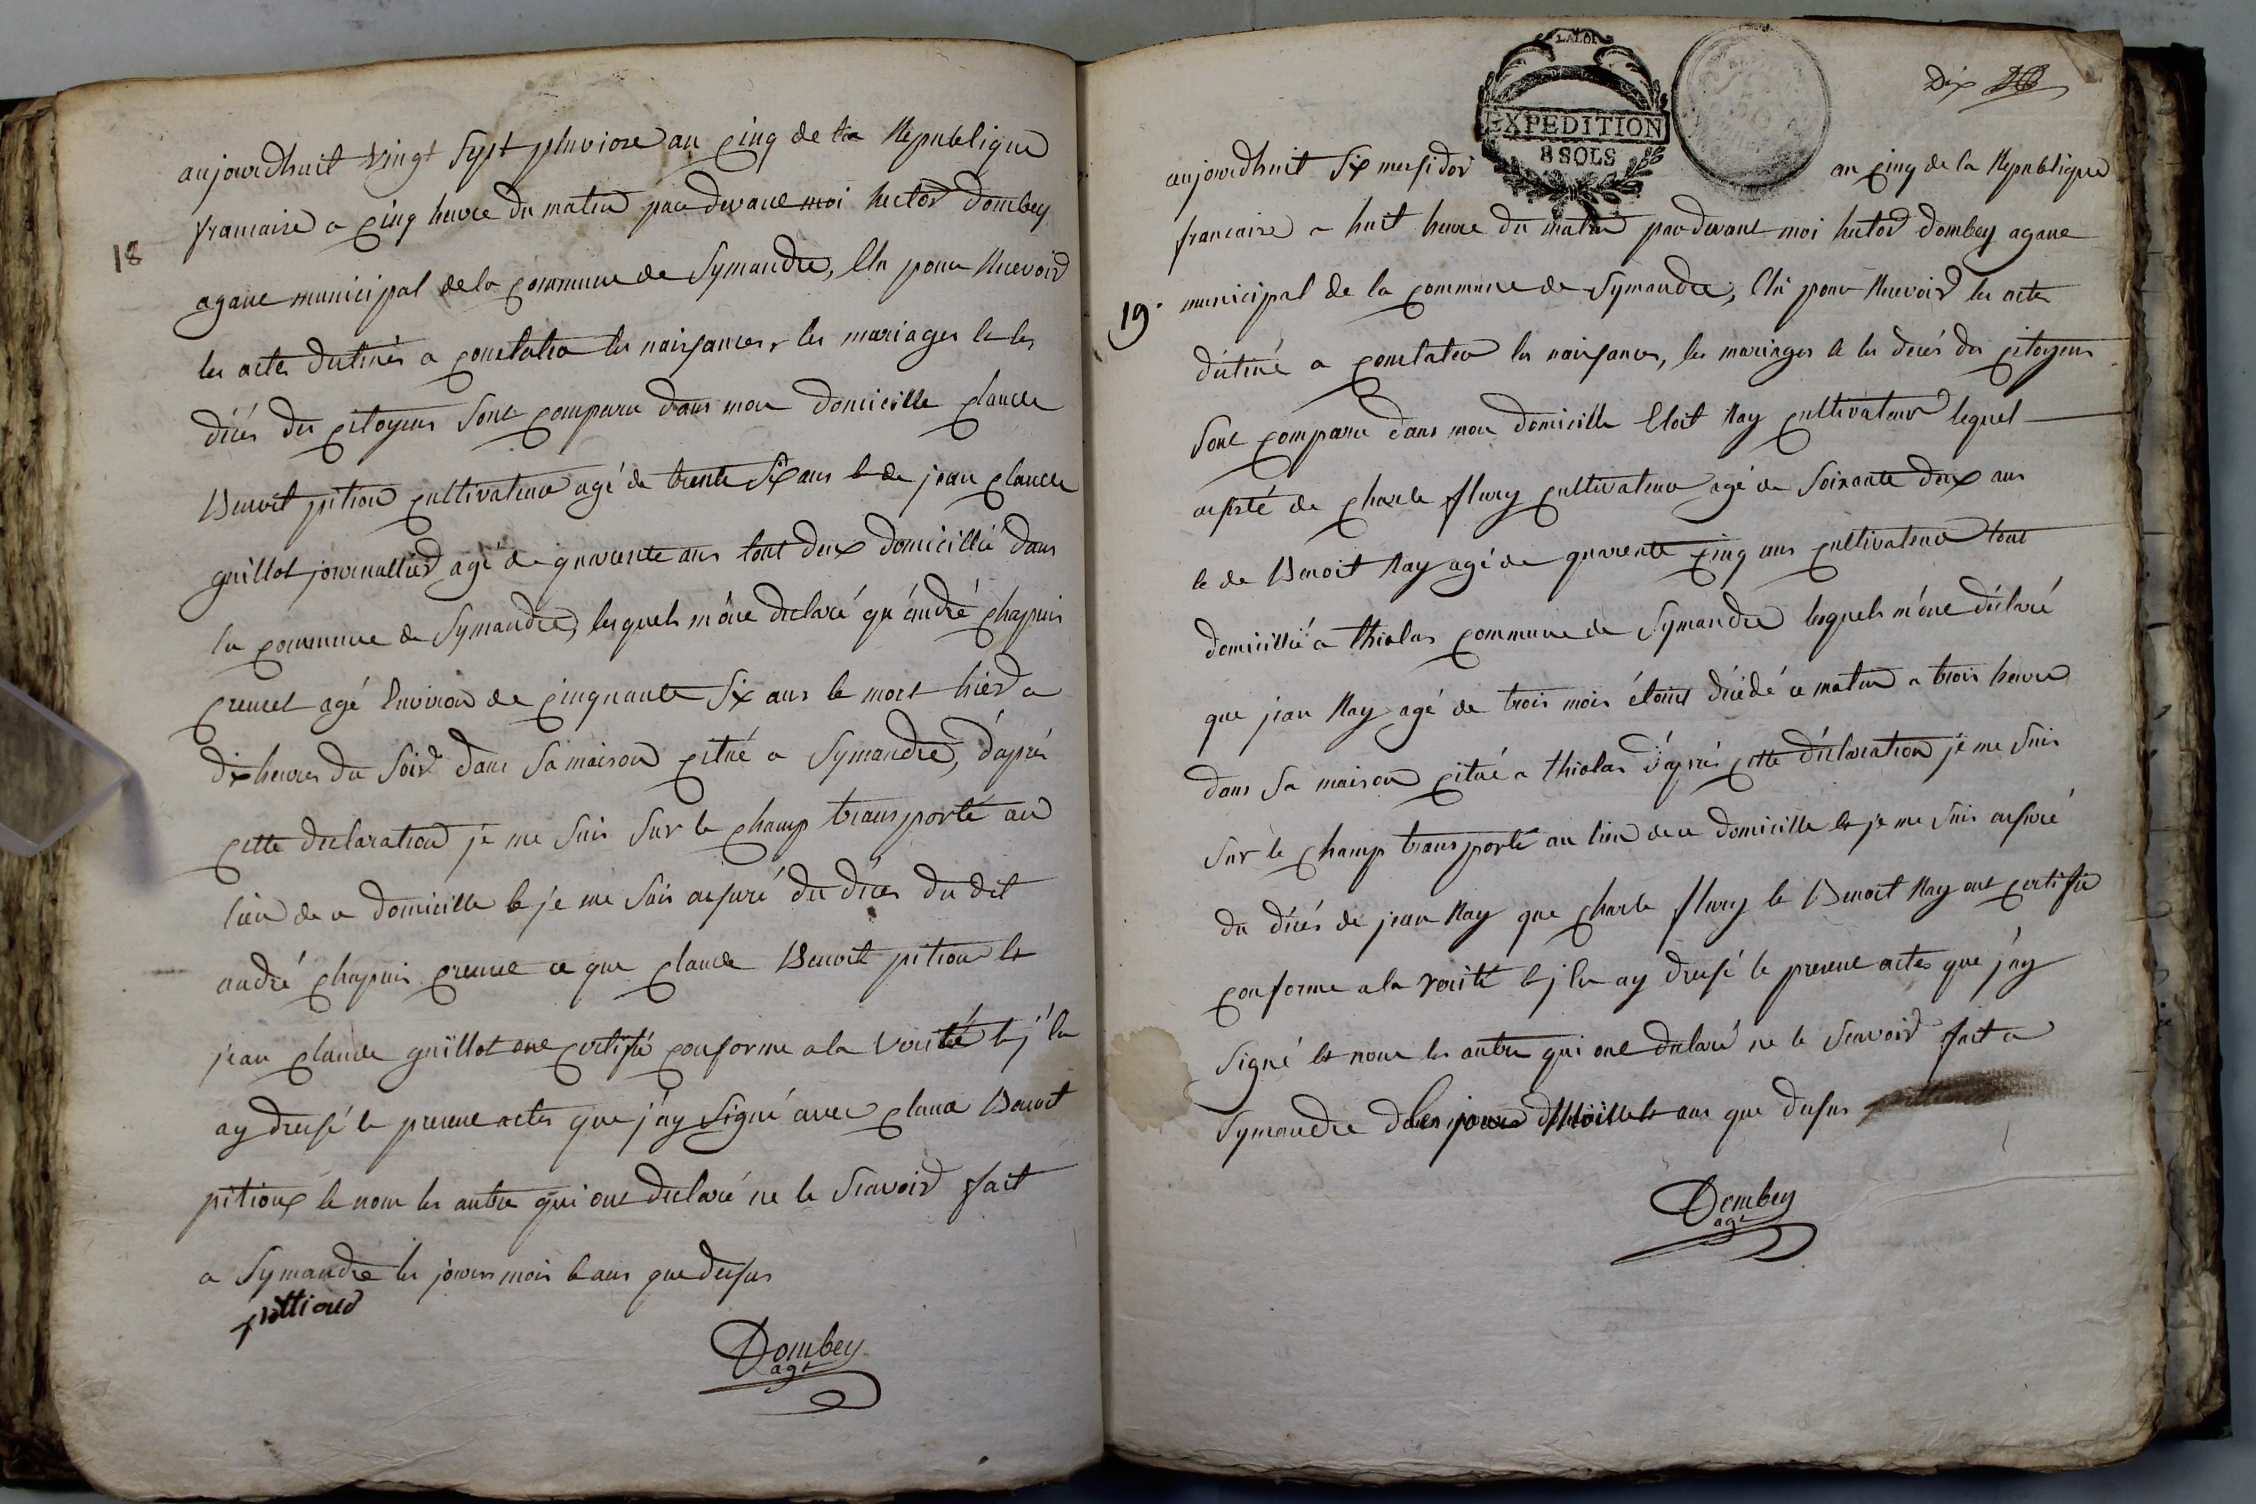 18
aujourdhuit vingt sept pluviose an cinq de la Republique
francaise a cinq heure du matin par devant moi hector Dombey
agant municipal de la commune de Symandre, Elu pour Recevoir
les actes destinés a constater les naissances, les mariages et les
décés des citoyens sont comparu dans mon domicille claude
Benoit pition cultivateur agé de trente six ans et de jean claude
guillot journallier agé de quarente ans tout deux domicillié dans
la commune de Symandre, lesquels mont declaré qu'andré chapuis
creucet agé Environ de cinquante six ans et mort hier a
dix heures du soir dans sa maison citué a Symandre, d'aprés
cette declaration je me suis sur le champ transporté au
lieu de ce domicille et je me suis assuré du déces du dit
andré chapuis ce que claude Benoit pition et
jean claude guillot ont certifié conforme a la verité et j'en
ay dressé le present actes que j'ay signé avec claude Benoit
pitioux et non les autre qui ont declaré ne le scavoir fait
a Symandre les jours mois et ans que dessus
pittioud
Dombey
agt
LA LOI
EXPEDITION
8 SOLS
Dix
aujourdhuit six messidor an cinq de la Republique
francaise a huit heure du matin par devant moi hector dombey agant
19. municipal de la commune de Symandre, Elu pour Recevoir les actes
déstiné a constater les naissances, les mariages et les décés des citoyens
sont comparu dans mon domicille Eloit Ray cultivateur lequel
assisté de charle flury cultivateur agé de soixante deux ans
et de Benoit Ray agé de quarente cinq ans cultivateur tout
domicillié a thiolas commune de Symandre lesquels m'ont déclaré
que jean Ray agé de trois mois étoint décédé ce matin a trois heure
dans sa maison citué a thiolas d'aprés cette déclaration je me suis
sur le champ transporté au lieu de ce domicille et je me suis assuré
du décés de jean Ray que charle flury et Benoit Ray ont certifié
conforme a la verité et j En ay dressé le present actes que j'ay
signé et non les autre qui ont declaré ne le scavoir fait a
Symandre les jours mois et ans que dessus
Dombey
agt